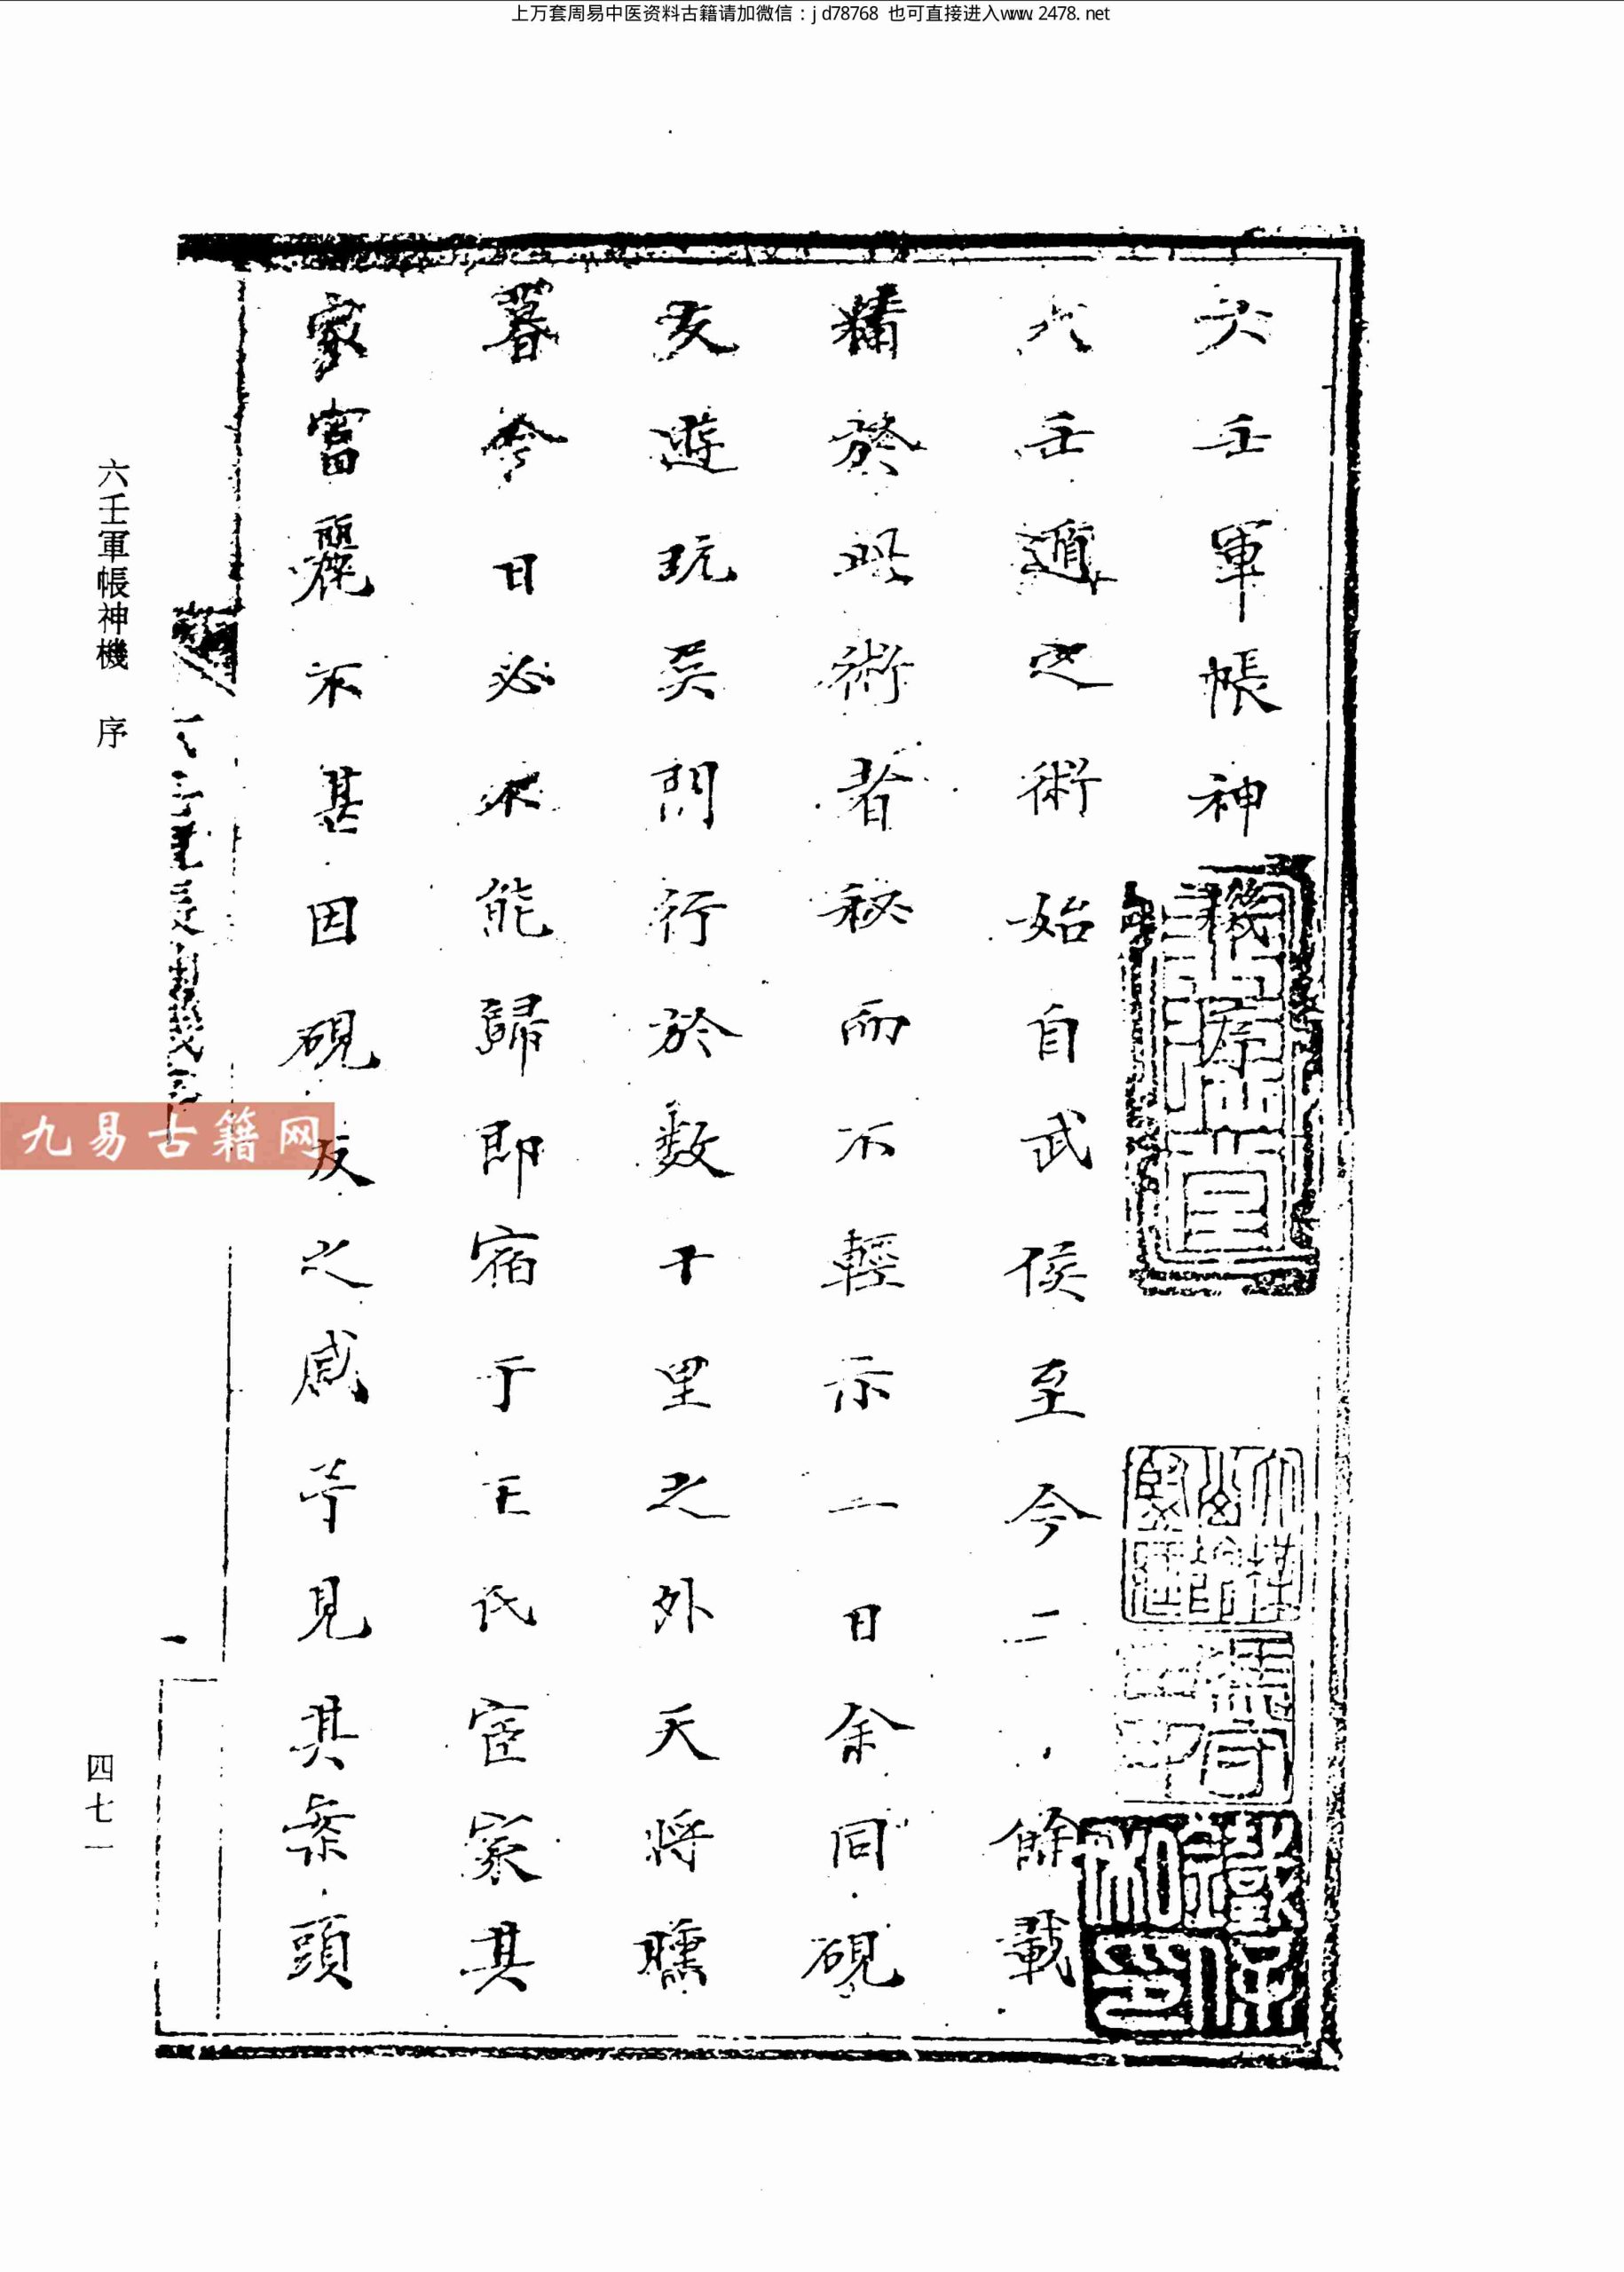 上万套周易中医资料古籍请加微信：jd78768 也可直接进入www.2478.net
六壬軍帳神機序
六壬遁之術始自武侯至今二餘載
精於此術者秘而不輕示一日余同硯
友遊玩吳門行於数十里之外天將曛
暮今日必不能歸即宿于王氏宦家其
家富麗不甚因硯友之戚苐見其案頭
六壬軍帳神機 序
一
四七一
九易古籍网